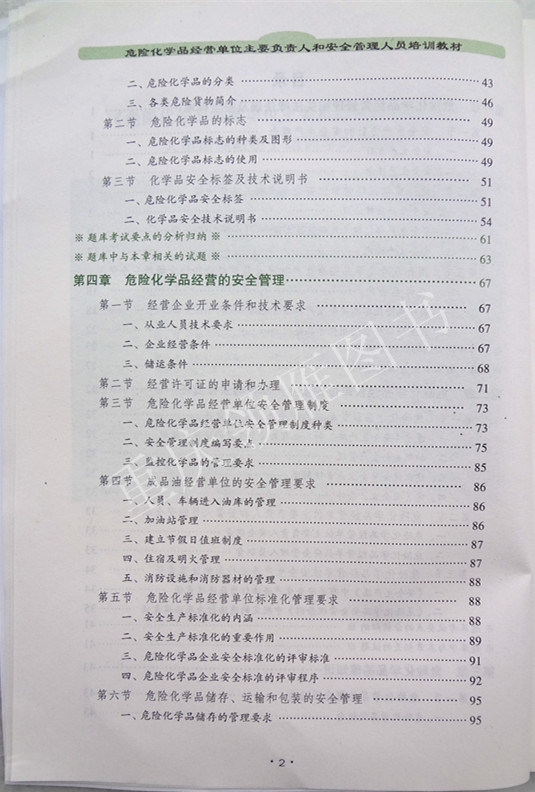 危险化学品经营单位主要负责人和安全管理人员培训教材
二、危险化学品的分类 43
三、各类危险货物简介 46
第二节 危险化学品的标志 49
一、危险化学品标志的种类及图形 49
二、危险化学品标志的使用 49
第三节 化学品安全标签及技术说明书 51
一、危险化学品安全标签 51
二、化学品安全技术说明书 54
※题库考试要点的分析归纳※ 61
※题库中与本章相关的试题※ 63
第四章 危险化学品经营的安全管理 67
第一节 经营企业开业条件和技术要求 67
一、从业人员技术要求 67
二、企业经营条件 67
三、储运条件 68
第二节 经营许可证的申请和办理 71
第三节 危险化学品经营单位安全管理制度 73
一、危险化学品经营单位安全管理制度种类 73
二、安全管理制度编写要点 75
三、监控化学品的管理要求 85
第四节 成品油经营单位的安全管理要求 86
一、人员、车辆进入油库的管理 86
二、加油站管理 86
三、建立节假日值班制度 87
四、住宿及明火管理 87
五、消防设施和消防器材的管理 88
第五节 危险化学品经营单位标准化管理要求 88
一、安全生产标准化的内涵 88
二、安全生产标准化的重要作用 89
三、危险化学品企业安全标准化的评审标准 91
四、危险化学品企业安全标准化的评审程序 92
第六节 危险化学品储存、运输和包装的安全管理 95
一、危险化学品储存的管理要求 95
· 2 ·
重庆领雁图书